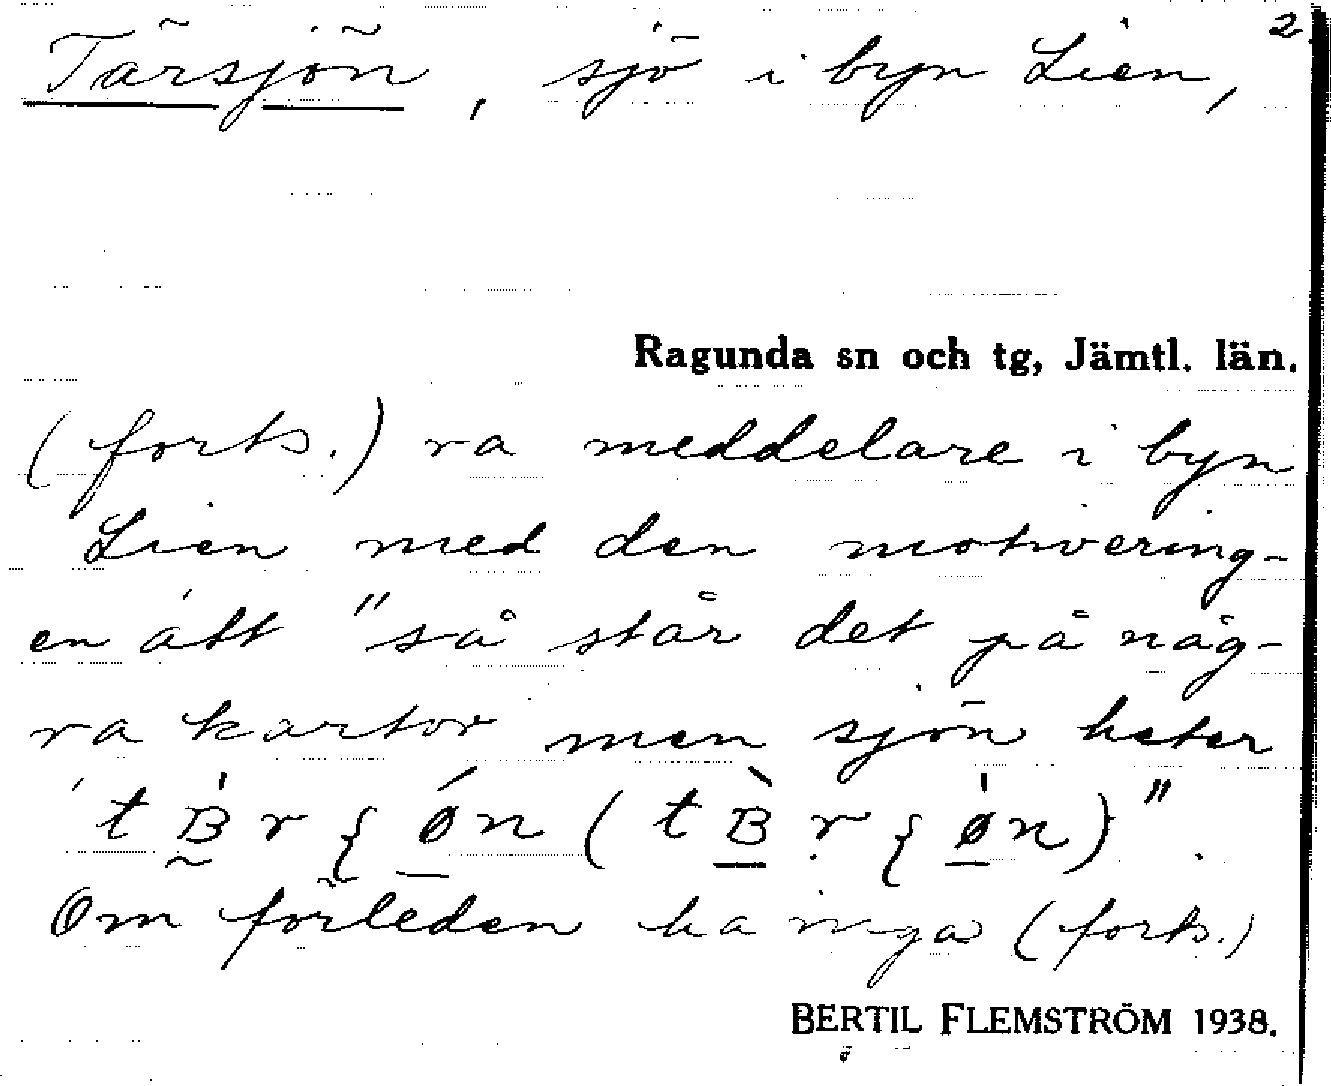 2
Tärsjön, sjö i byn Lien,
Ragunda sn och tg, Jämtl. län.
(forts.) ra meddelare i byn
Lien med den motivering-
en att "så står det på någ-
ra kartor men sjön heter
Om förleden ha inga (forts.)
BERTIL FLEMSTRÖM 1938.